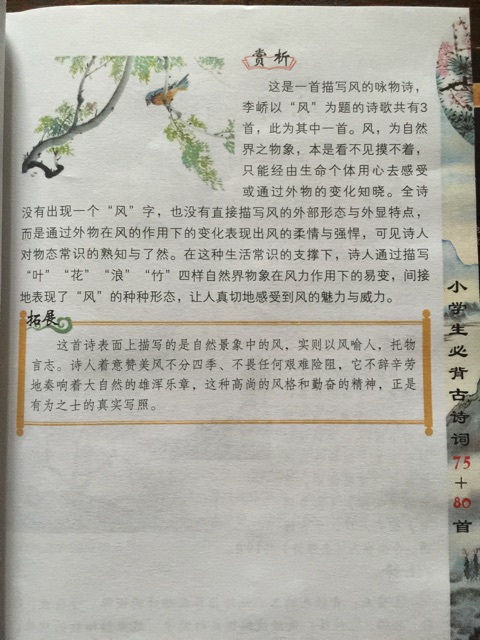 赏析
这是一首描写风的咏物诗，
李峤以“风”为题的诗歌共有3
首，此为其中一首。风，为自然
界之物象，本是看不见摸不着，
只能经由生命个体用心去感受
或通过外物的变化知晓。全诗
没有出现一个“风”字，也没有直接描写风的外部形态与外显特点，
而是通过外物在风的作用下的变化表现出风的柔情与强悍，可见诗人
对物态常识的熟知与了然。在这种生活常识的支撑下，诗人通过描写
“叶”“花”“浪”“竹”四样自然界物象在风力作用下的易变，间接
地表现了“风”的种种形态，让人真切地感受到风的魅力与威力。
拓展
这首诗表面上描写的是自然景象中的风，实则以风喻人，托物
言志。诗人着意赞美风不分四季、不畏任何艰难险阻，它不辞辛劳
地奏响着大自然的雄浑乐章，这种高尚的风格和勤奋的精神，正是
有为之士的真实写照。
小学生必背古诗词75+80首